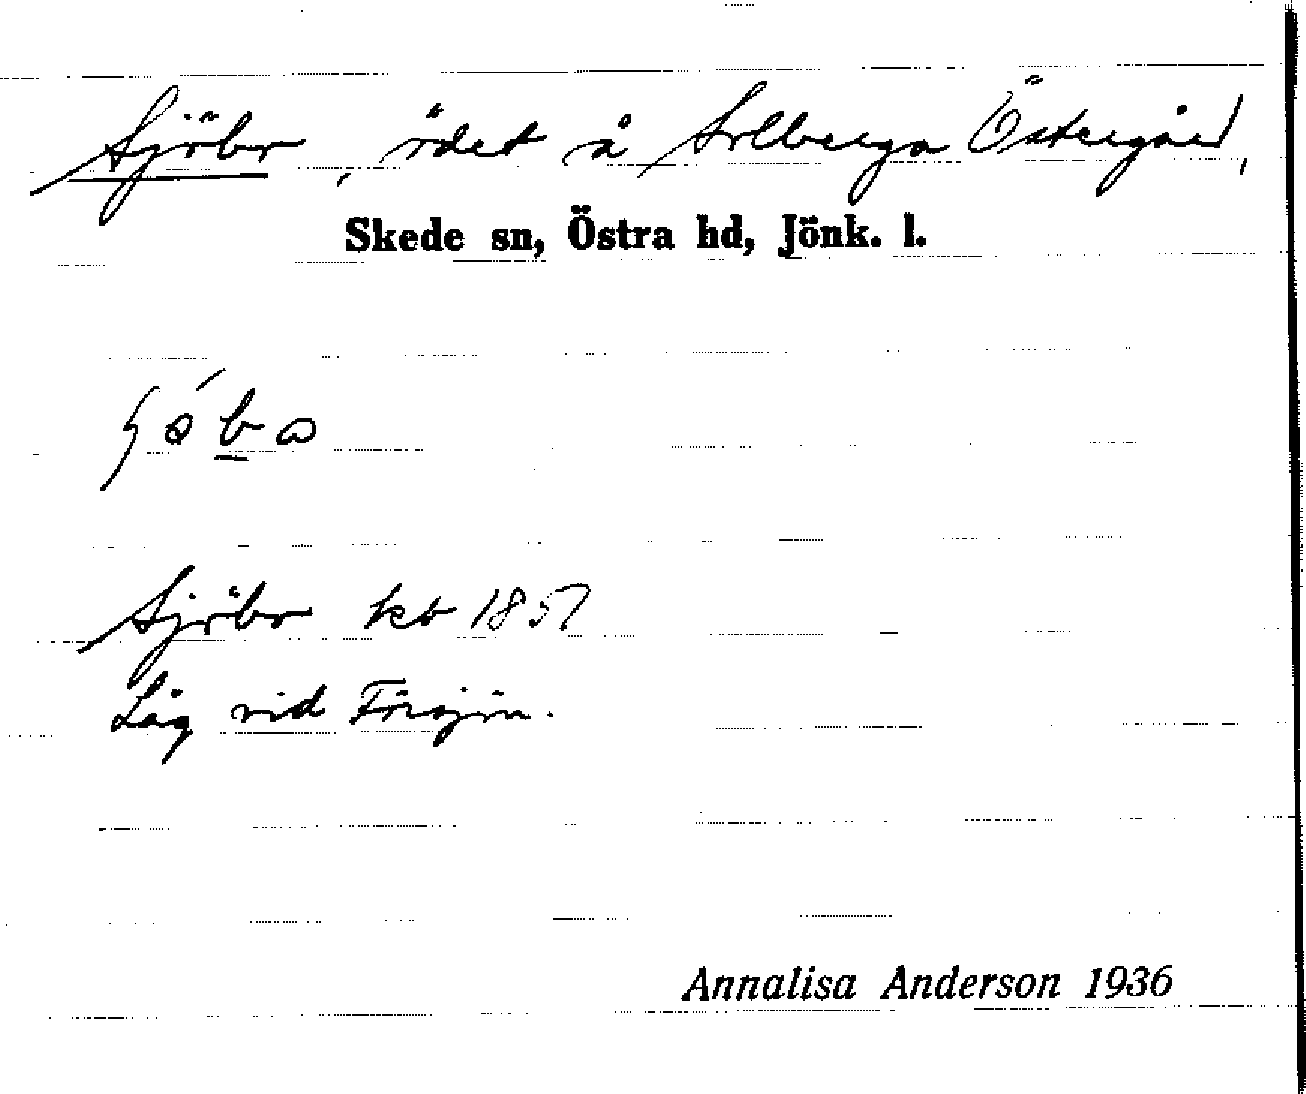 Sjöbo, ödet å Solberga Östergård,
Skede sn, Östra hd, Jönk. l.
Sjöbo kb 1857
Låg vid Försjön.
Annalisa Anderson 1936